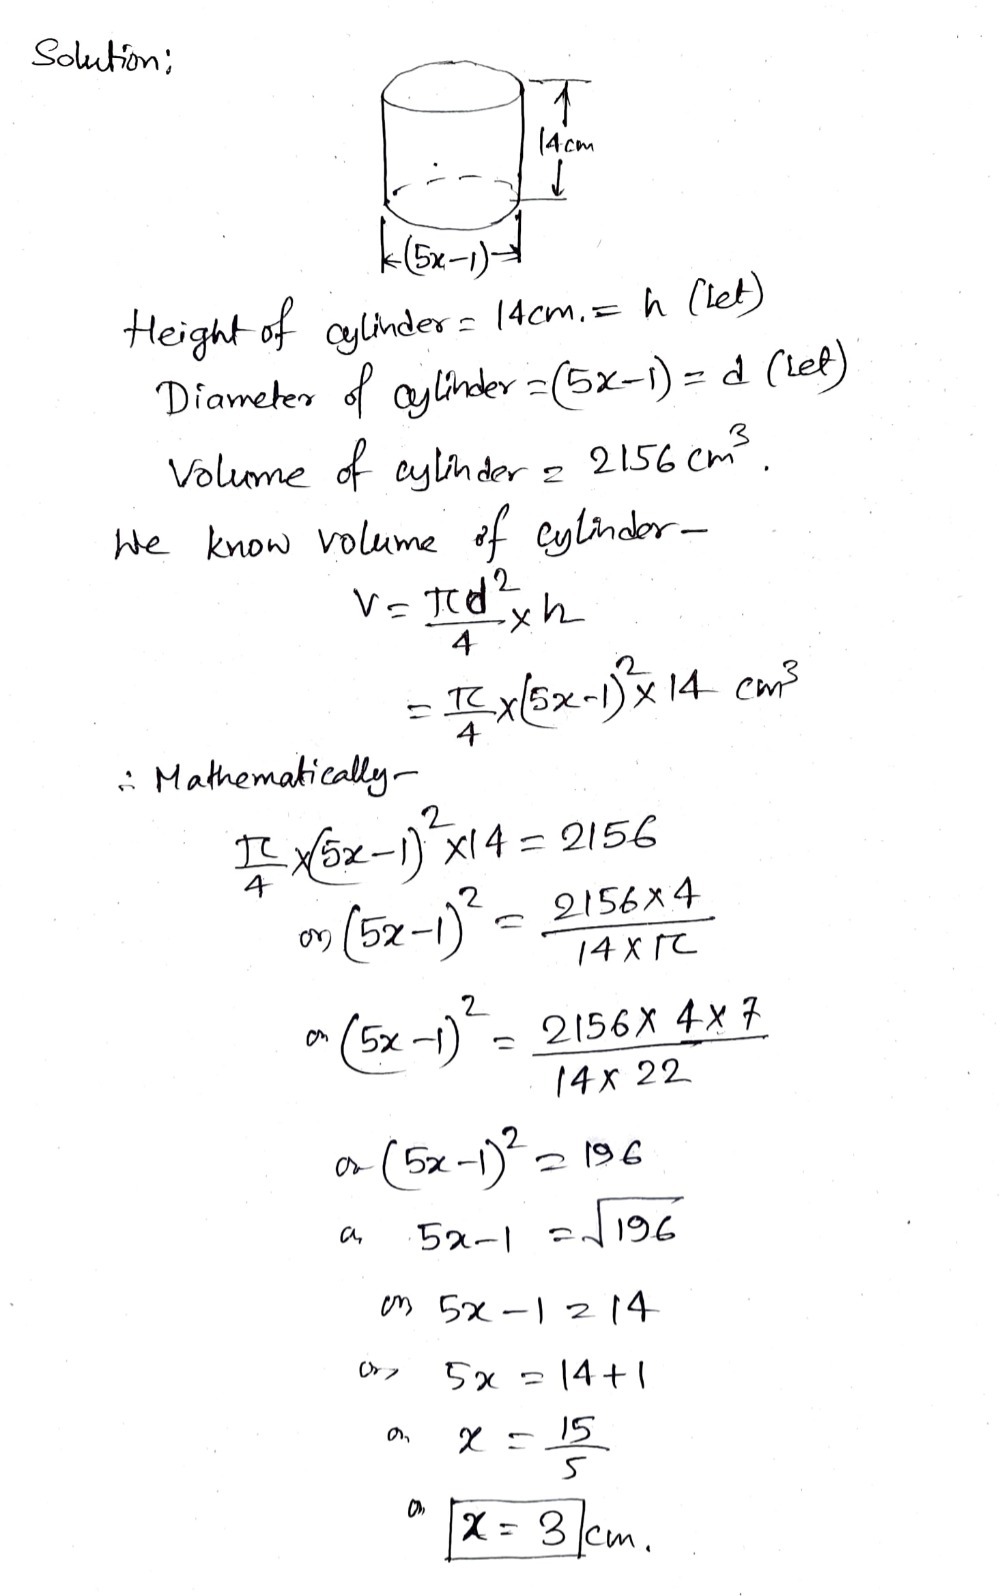 Solution;
14cm
(5x-1)
Height of cylinder = 14cm. = h (let)
Diameter of cylinder = (5x-1) = d (let)
Volume of cylinder = 2156 cm³.
We know volume of cylinder-
V = πd²/4 × h
= π/4 × (5x-1)² × 14 cm³
∴ Mathematically-
π/4 × (5x-1)² × 14 = 2156
or (5x-1)² = 2156×4 / 14×π
or (5x-1)² = 2156×4×7 / 14×22
or (5x-1)² = 196
or 5x-1 = √196
or 5x-1 = 14
or 5x = 14+1
or x = 15/5
or x = 3 cm.